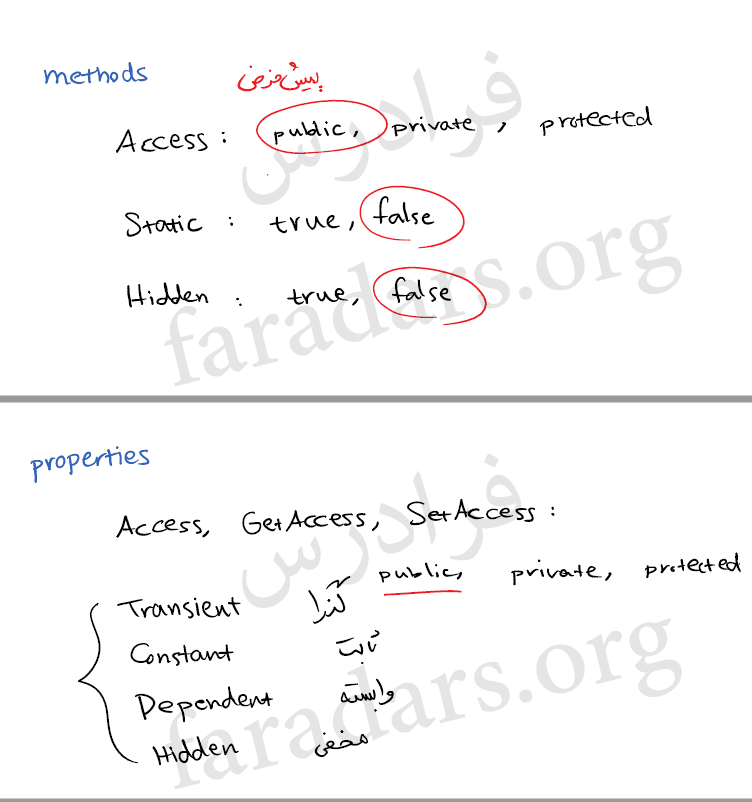 methods
پیش‌فرض
Access : public, private , protected
Static : true, false
Hidden : true, false
فرادرس
faradars.org
properties
Access, GetAccess, SetAccess :
public, private, protected
Transient گذرا
Constant ثابت
Dependent وابسته
Hidden مخفی
فرادرس
faradars.org